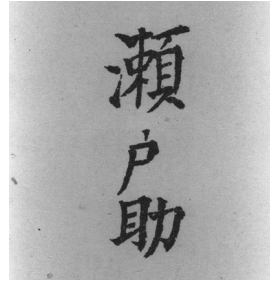 瀬戸助